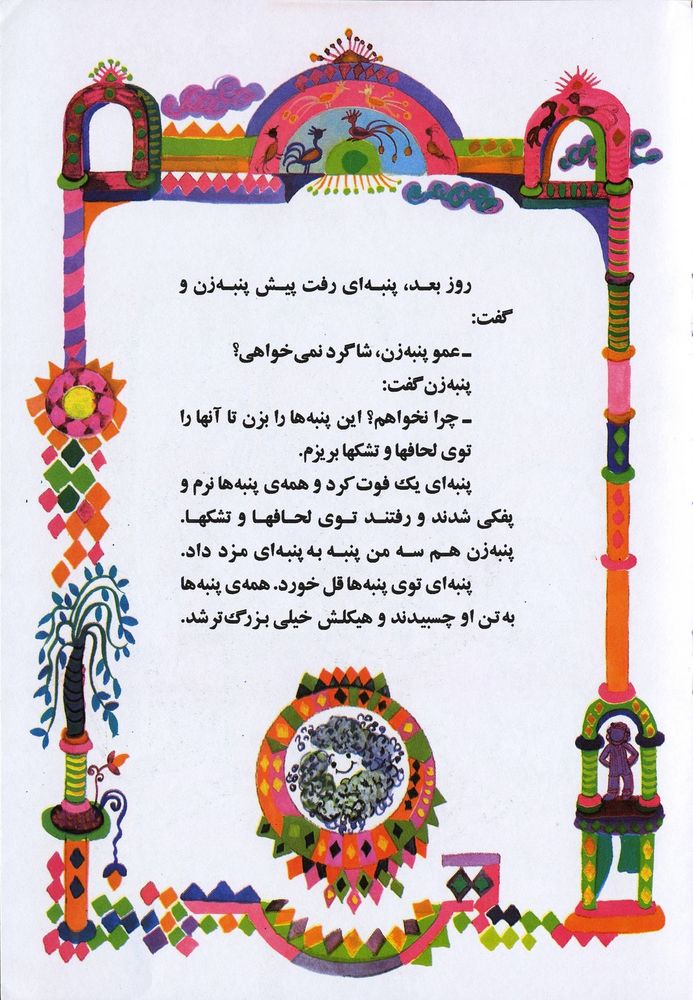 روز بعد، پنبه‌ای رفت پیش پنبه‌زن و
گفت:
ـ عمو پنبه‌زن، شاگرد نمی‌خواهی؟
پنبه‌زن گفت:
ـ چرا نخواهم؟ این پنبه‌ها را بزن تا آنها را
توی لحافها و تشکها بریزم.
پنبه‌ای یک فوت کرد و همه‌ی پنبه‌ها نرم و
پفکی شدند و رفتند توی لحافها و تشکها.
پنبه‌زن هم سه من پنبه به پنبه‌ای مزد داد.
پنبه‌ای توی پنبه‌ها قل خورد. همه‌ی پنبه‌ها
به تن او چسبیدند و هیکلش خیلی بزرگ‌تر شد.